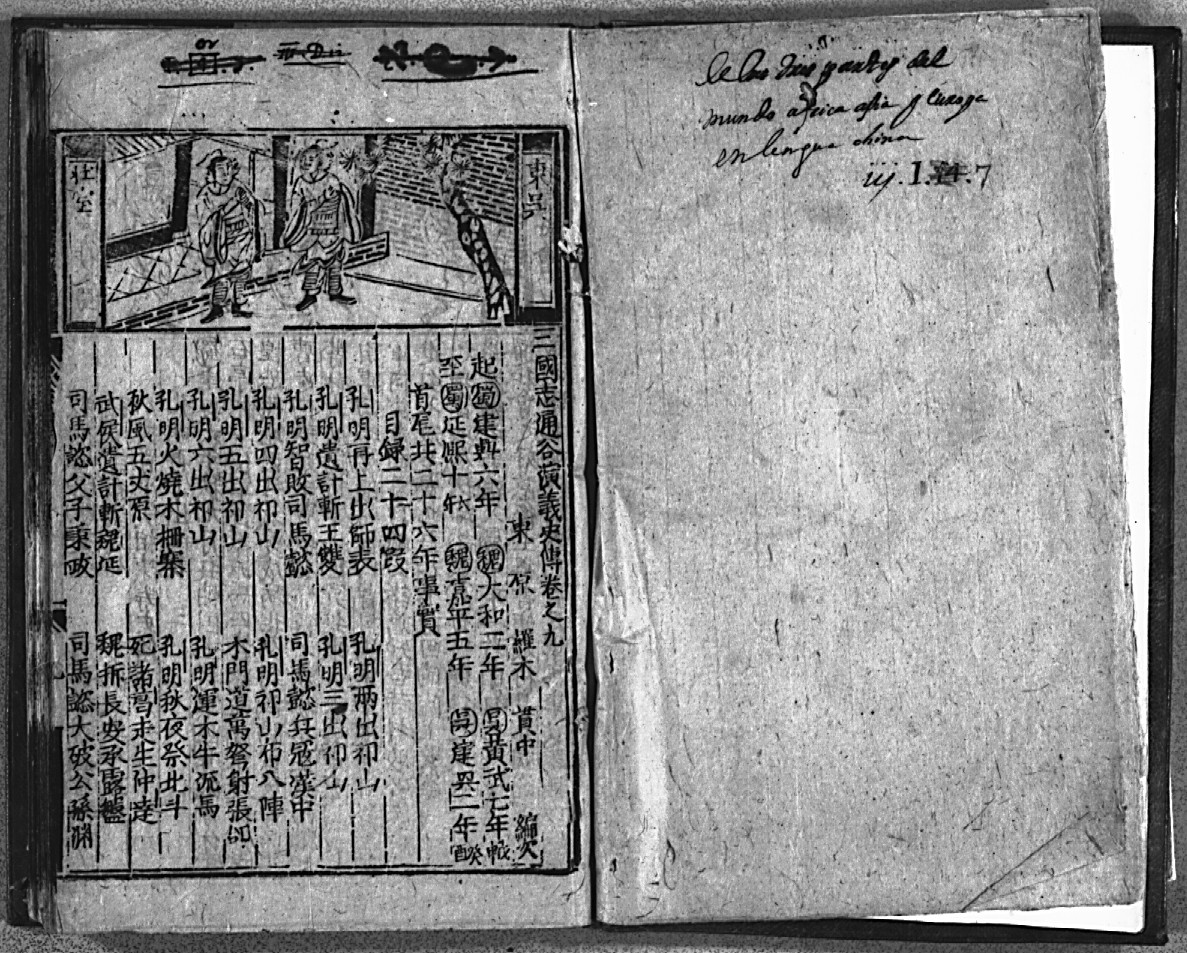 de las tres partes del
mundo africa asia y Europa
en lengua china
iij. I. 7
東吳
三國志通俗演義史傳卷之九
東原 羅本 貫中 編次
起蜀建興六年 魏大和二年 吳黃武七年
至蜀延熙十六年 魏嘉平五年 吳建興二年 癸酉
首尾共二十六年事實
目録二十四段
孔明再上出師表 孔明兩出祁山
孔明遺計斬王雙 孔明三出祁山
孔明智敗司馬懿 司馬懿兵寇漢中
孔明四出祁山 孔明祁山布八陣
孔明五出祁山 木門道萬弩射張郃
孔明六出祁山 孔明運木牛流馬
孔明火燒木柵寨 孔明秋夜祭北斗
秋風五丈原 死諸葛走生仲達
武侯遺計斬魏延 魏拆長安承露盤
司馬懿父子秉政 司馬懿大破公孫淵